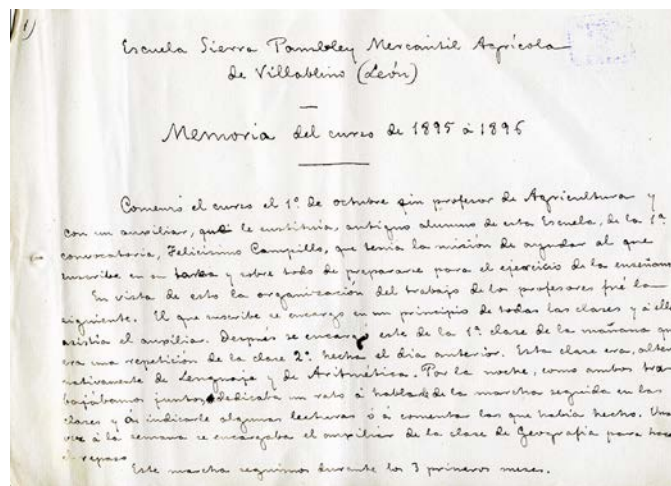 1)
Escuela Sierra Pambley Mercantil Agrícola
de Villablino (León)
Memoria del curso de 1895 á 1896
Comenzó el curso el 1º de octubre sin profesor de Agricultura y
con un auxiliar, que le sustituía, antiguo alumno de esta Escuela, de la 1ª
convocatoria, Felicísimo Campillo, que tenía la misión de ayudar al que
suscribe en su tarea y sobre todo de prepararse para el ejercicio de la enseñanza
En vista de esto la organización del trabajo de los profesores fué la
siguiente. El que suscribe se encargó en un principio de todas las clases y á ellas
asistía el auxiliar. Después se encargó este de la 1ª clase de la mañana que
era una repetición de la clase 2ª hecha el día anterior. Esta clase era, alter
nativamente de Lenguaje y de Aritmética. Por la noche, como ambos tra
bajábamos juntos, dedicaba un rato á hablar de la marcha seguida en las
clases y á indicarle algunas lecturas ó á comentar las que había hecho. Una
vez á la semana se encargaba el auxiliar de la clase de Geografía para hacer
el repaso
Esta marcha seguimos durante los 3 primeros meses.